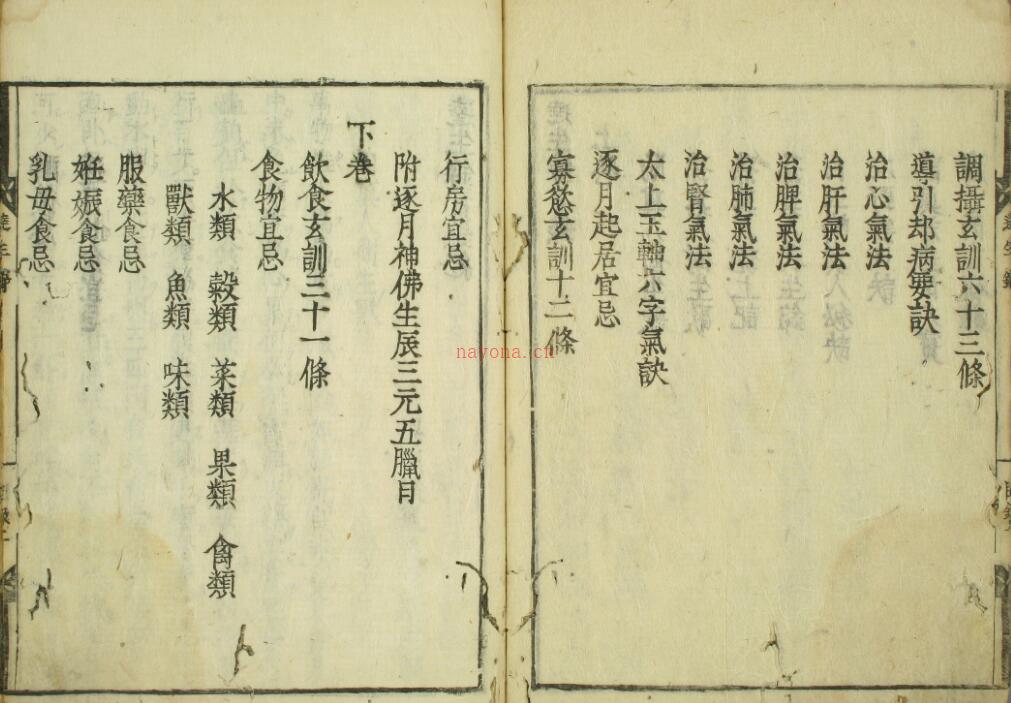 調攝玄訓六十三條
導引却病要訣
治心氣法
治肝氣法
治脾氣法
治肺氣法
治腎氣法
太上玉軸六字氣訣
逐月起居宜忌
寡慾玄訓十二條
行房宜忌
附逐月神佛生辰三元五臘日
下卷
飲食玄訓三十一條
食物宜忌
水類 穀類 菜類 果類 禽類
獸類 魚類 味類
服藥食忌
妊娠食忌
乳母食忌
nayona.cn